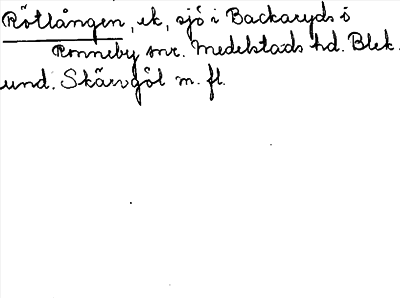 Rötlången, ek, sjö i Backaryds o
Ronneby snr. Medelstads hd. Blek.
und. Skärvgöl m. fl.